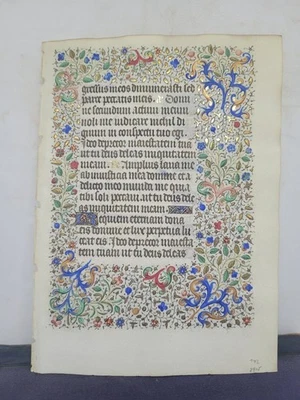 gressus meos dinumerasti sed
parce peccatis meis. Domi
ne secundum actum meum
noli me iudicare nichil di
gnum in conspectu tuo egi.
Ideo deprecor maiestatem tu
am ut tu deus deleas iniquitatem
meam. Amplius laua me
ab iniusticia mea domine et a
delicto meo munda me quia
tibi soli peccaui. ut tu deus dele
as iniquitatem meam.
Requiem eternam dona
eis domine et lux perpetua lu
ceat eis. Ideo deprecor maiesta
tem tuam ut tu deus deleas